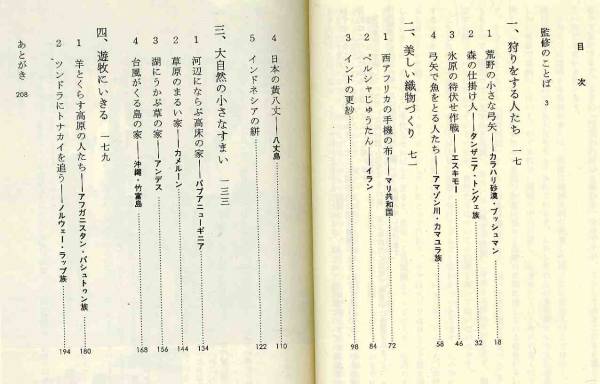 目次
監修のことば 3
一、狩りをする人たち 一七
1 荒野の小さな弓矢——カラハリ砂漠・ブッシュマン………18
2 森の仕掛け人——タンザニア・トングェ族………32
3 氷原の待伏せ作戦——エスキモー………46
4 弓矢で魚をとる人たち——アマゾン川・カマユラ族………58
二、美しい織物づくり 七一
1 西アフリカの手機の布——マリ共和国………72
2 ペルシャじゅうたん——イラン………84
3 インドの更紗………98
4 日本の黄八丈——八丈島………110
5 インドネシアの絣………122
三、大自然の小さなすまい 一三三
1 河辺にならぶ高床の家——パプアニューギニア………134
2 草原のまるい家——カメルーン………144
3 湖にうかぶ草の家——アンデス………156
4 台風がくる島の家——沖縄・竹富島………168
四、遊牧にいきる 一七九
1 羊とくらす高原の人たち——アフガニスタン・パシュトゥン族………180
2 ツンドラにトナカイを追う——ノルウェー・ラップ族………194
あとがき 208